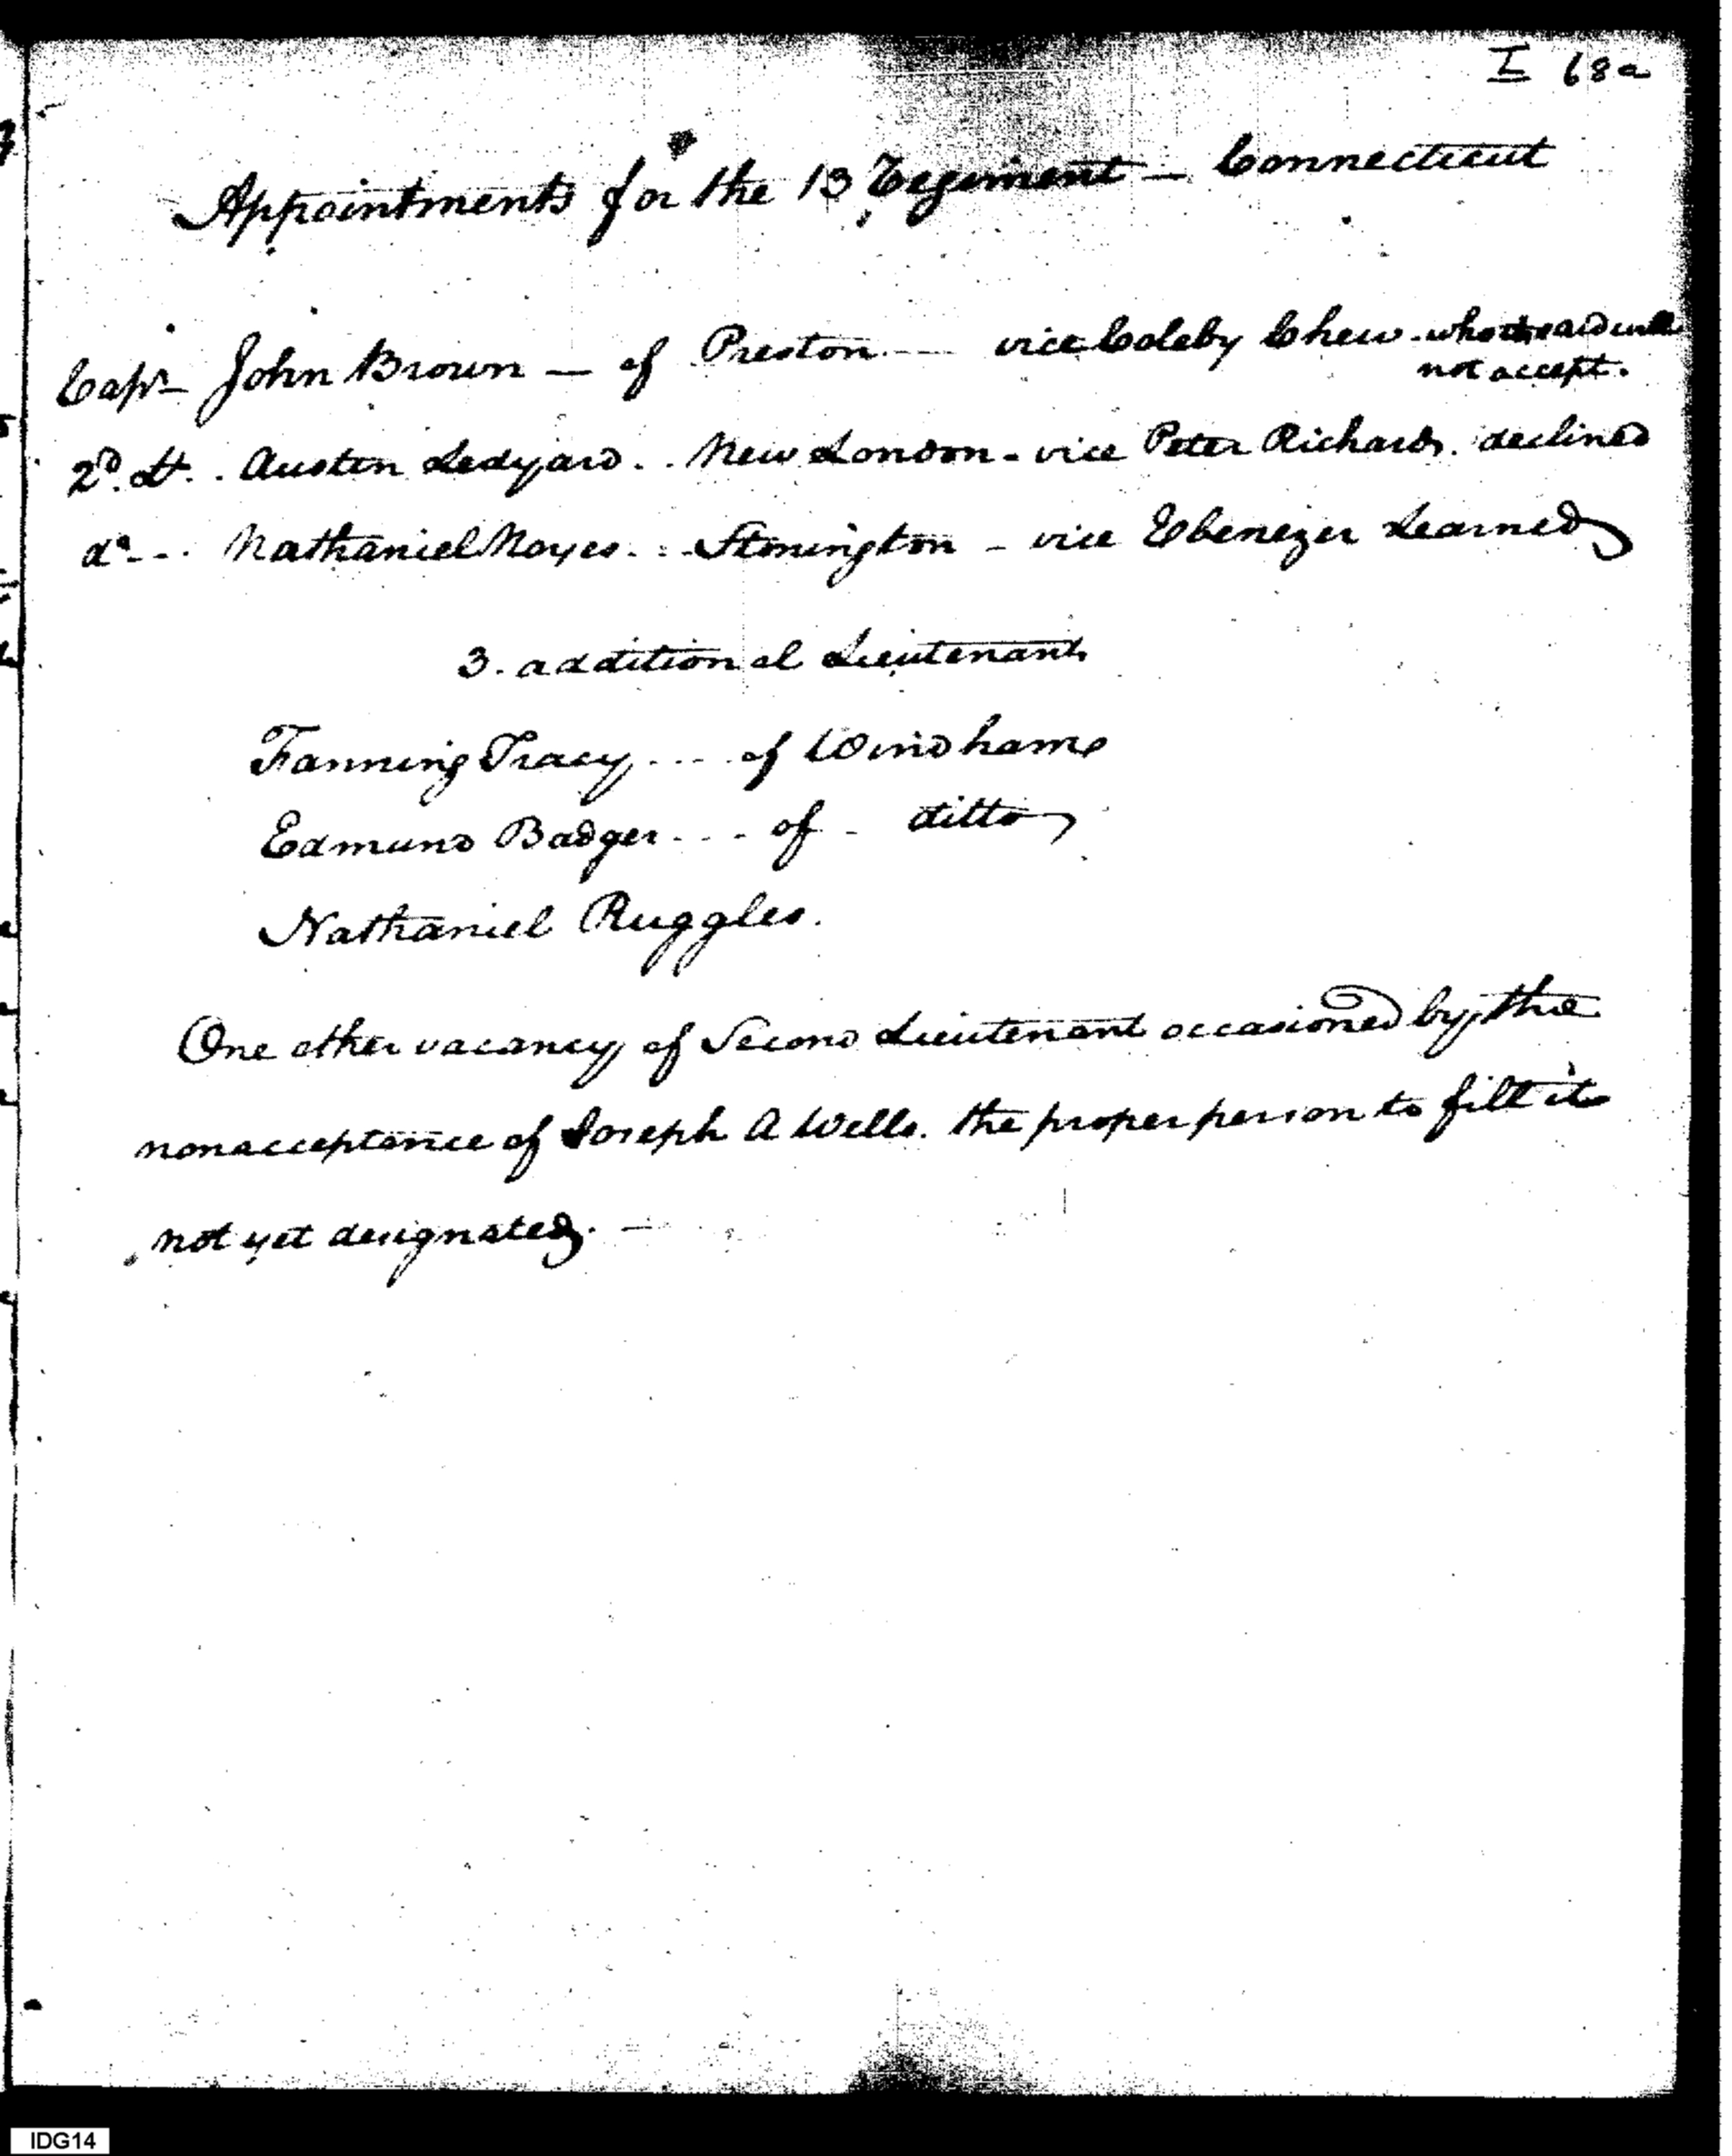 I 68a
Appointments for the 13 Regiment — Connecticut
Capt John Brown — of Preston — vice Coleby Chew - who it is said will
not accept.
2d. Lt. . Austin Ledyard. . New London - vice Peter Richards. declined
do - . . Nathaniel Noyes. . . Stonington - vice Ebenezer Learned
3. additional Lieutenants
Fanning Tracy . . . . of Windham
Edmund Badger . . . of - ditto
Nathaniel Ruggles.
One other vacancy of Second Lieutenant occasioned by the
nonacceptance of Joseph A Wells. the proper person to fill it
not yet designated. —
IDG14